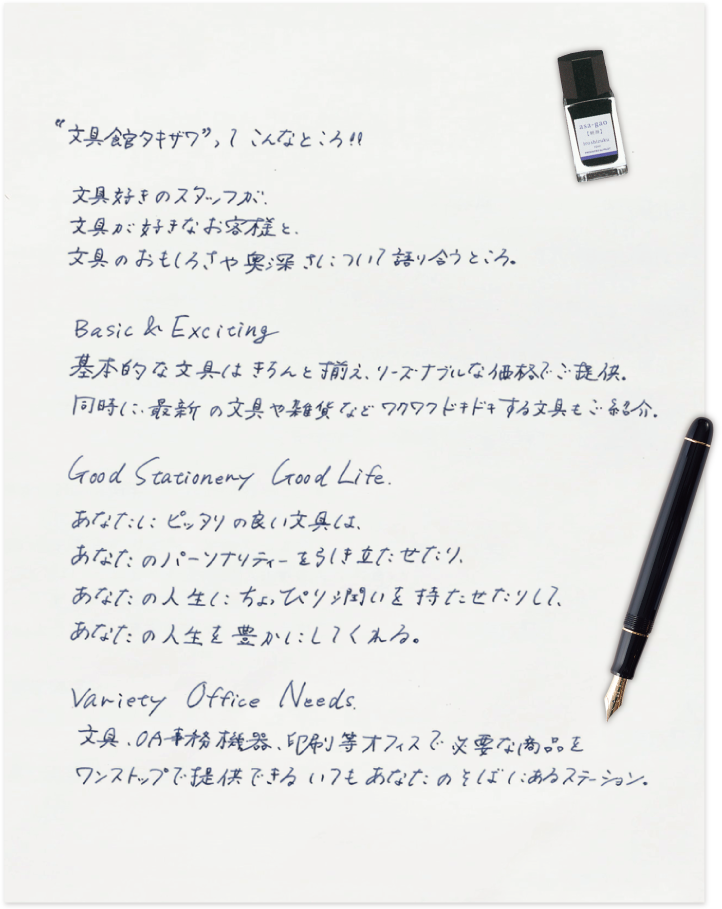 “文具館タキザワ”って こんなところ!!
文具好きのスタッフが、
文具が好きなお客様と、
文具のおもしろさや奥深さについて語り合うところ。
Basic & Exciting
基本的な文具はきちんと揃え、リーズナブルな価格でご提供。
同時に、最新の文具や雑貨などワクワクドキドキする文具もご紹介。
Good Stationery Good Life.
あなたにピッタリの良い文具は、
あなたのパーソナリティーを引き立たせたり、
あなたの人生にちょっぴり潤いを持たせたりして、
あなたの人生を豊かにしてくれる。
Variety Office Needs.
文具、OA事務機器、印刷等オフィスで必要な商品を
ワンストップで提供できるいつもあなたのそばにあるステーション。
asa-gao
[朝顔]
iroshizuku